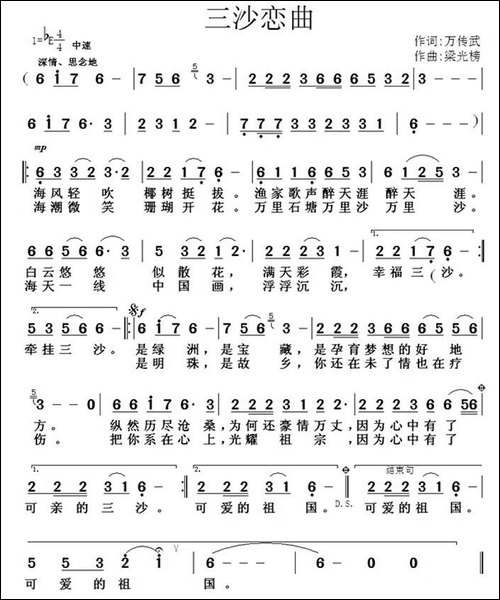 三沙恋曲
1=♭E 4/4 中速
作词:万传武
深情、思念地
作曲:梁光榜
(6 i 7 6 - | 7 5 6 3 - | 2 2 2 3 6 6 6 5 | 3 - - - |
6 i 7 6· 3 | 2 3 1 2 - | 7 7 7 3 3 2 3 3 1 | 6 - - - )
mp
6 3 3 2 3·2 | 2 2 1 7 6· | 6 1 1 6 6 5 3 | 6 1 2 5 3 - |
海风轻吹 椰树挺拔。渔家歌声醉天涯 醉天涯。
海潮微笑 珊瑚开花。万里石塘万里沙 万里沙。
1.
6 6 5 6 6·3 | 5 3 2 1 2· | 2 2 3 1 2· | 2 2 1 7 6 - :|
白云悠悠 似散花, 满天彩霞, 幸福三(沙。
海天一线 中国画, 浮浮沉沉,
2.
5 3 5 6 6 - :|: 6 i 7 6· 7 5 6 3· | 2 2 3 3 5 3 5 6 |
牵挂三沙。是绿洲,是宝藏,是孕育梦想的好地
是明珠,是故乡,你还在未了情也在疗
3 - - 0 | 6 6 i 7 6·3 | 2 2 3 3 1 2 2· | 2 2 3 6 6 5 6 |
方。 纵然历尽沧桑,为何还豪情万丈,因为心中有了
伤。 把你系在心上,光耀祖宗,因为心中有了
1. 2. 结束句
2 2 2 3 1 2 - :| 2 2 2 3 1 6 - :| 2 2 2 3 1 6 - |
可亲的三沙。 可爱的祖国。D.S. 可爱的祖国。
5 5 5 3 2 i | 6 - - - | 6 - 0 0 ||
可爱的祖 国。